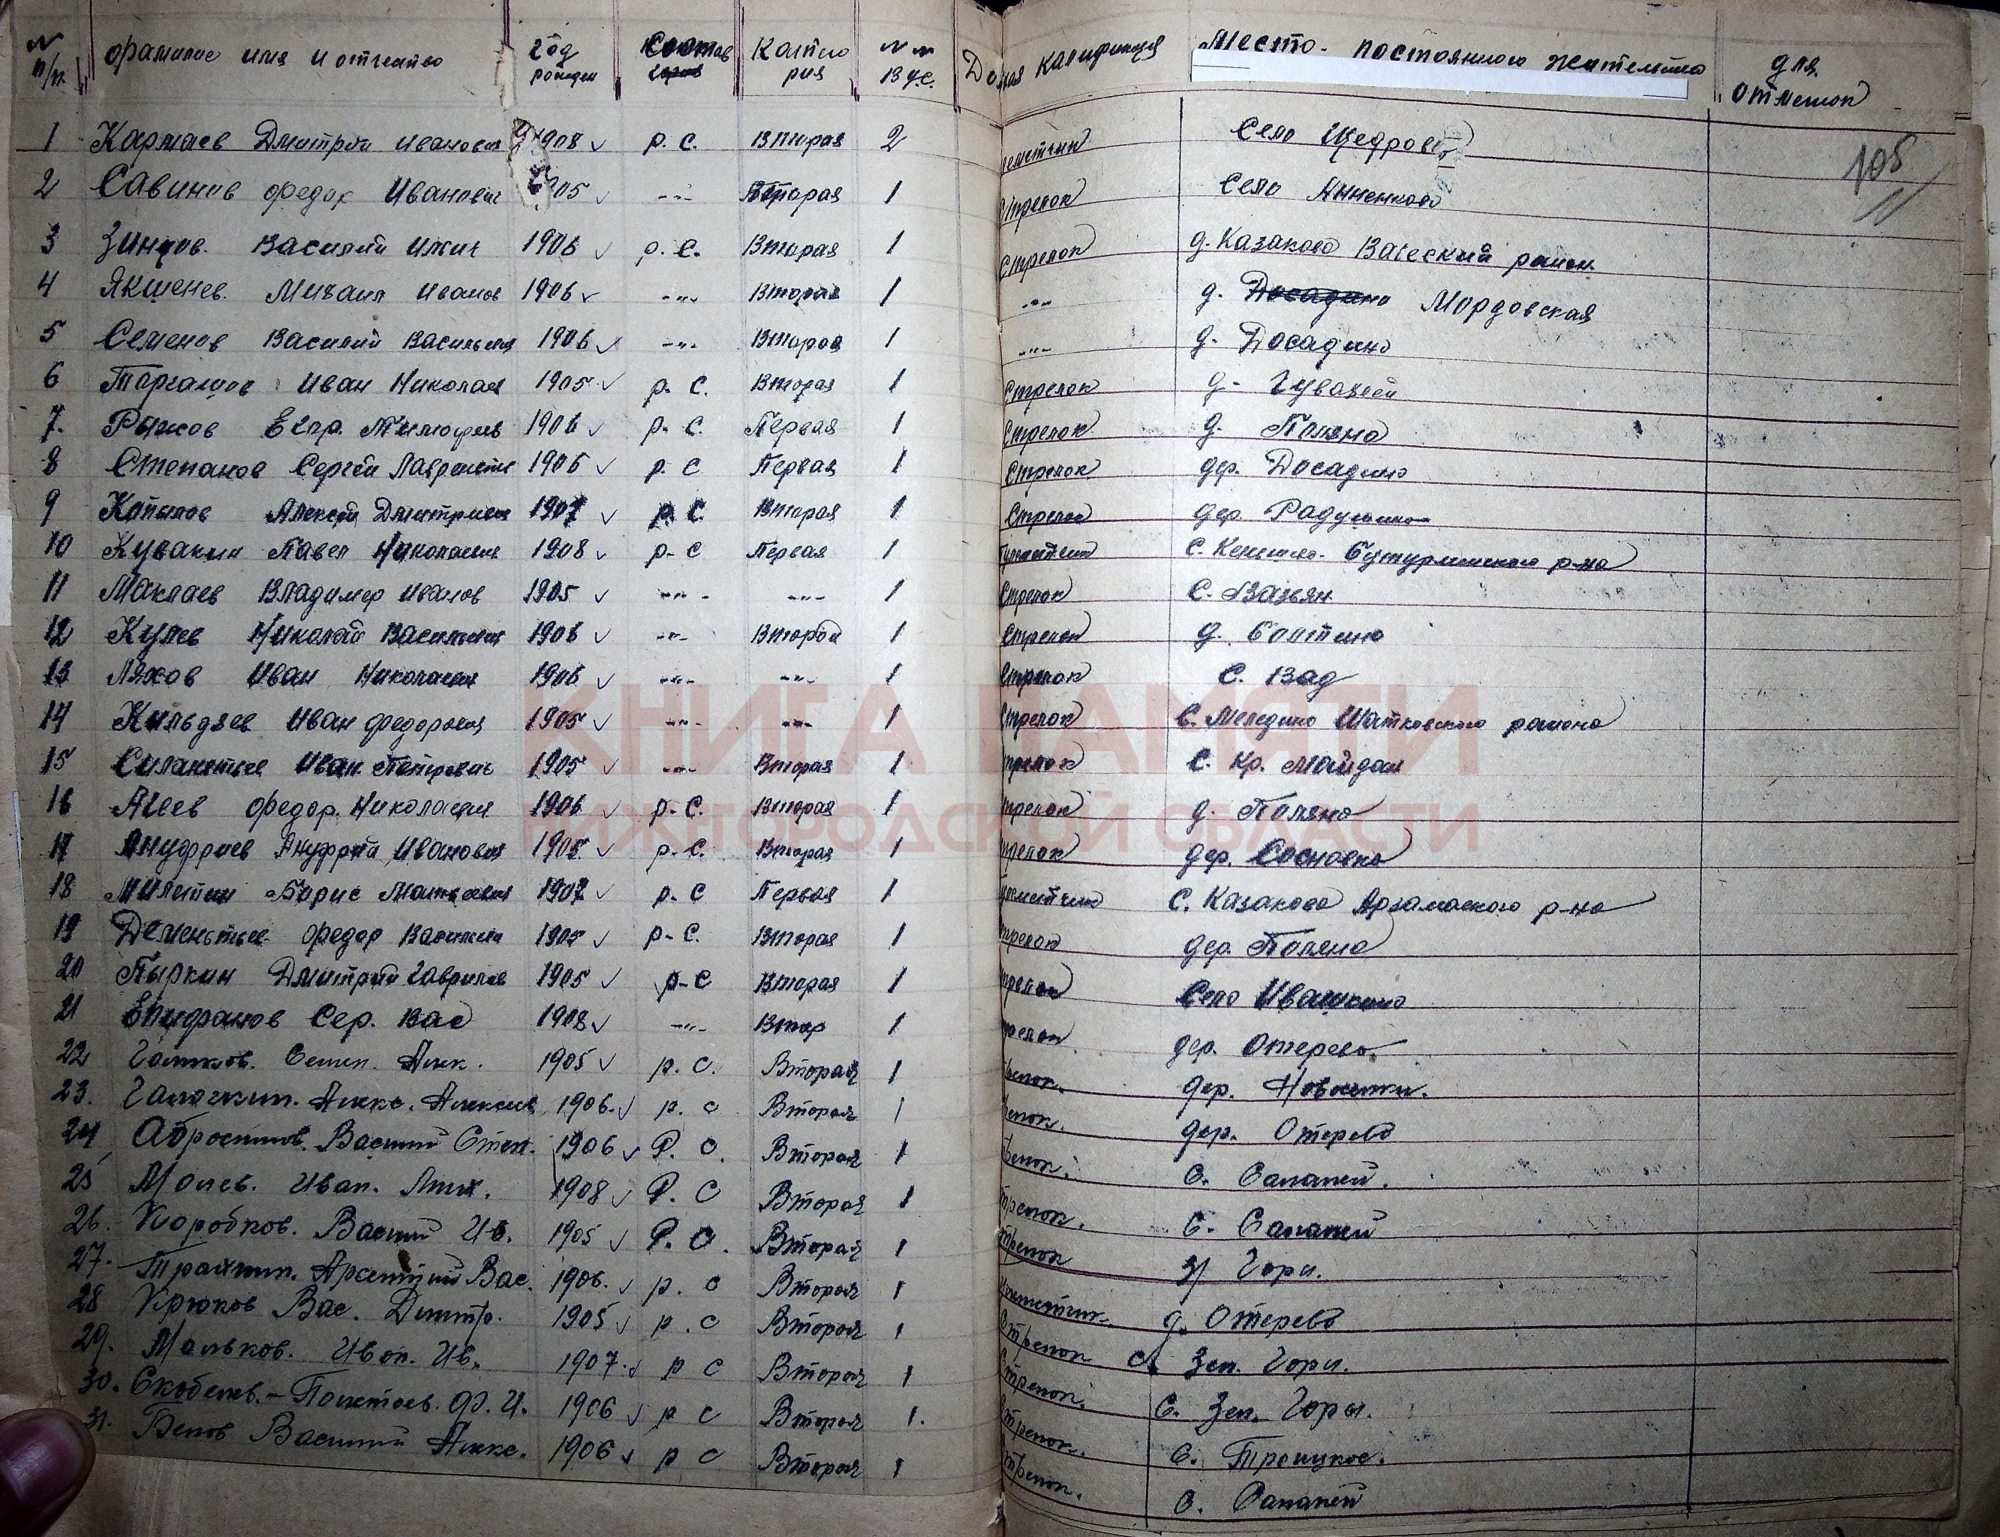 № п/п. Фамилие имя и отчество год рожден Состав Катего рия №№ ВУС. Должная калификация Место постоянного жительства для отметок
105
1 Кармаев Дмитрий Иванович 1908 р. С. Вторая 2 Село Щедров
2 Савинов Федор Иванович 1905 -"- Вторая 1 Стрелок Село Анненково
3 Василий Ильич 1906 р. С. Вторая 1 Стрелок д. Казаково Вачский район
4 Якшенев Михаил Иванов 1906 -"- Вторая 1 -"- д. Досадино Мордовская
5 Семенов Василий Васильевич 1906 -"- Вторая 1 -"- д. Досадино
6 Торгашов Иван Николаев 1905 р. С. Вторая 1 Стрелок д.
7. Рыжов Егор 1906 р. С. Первая 1 Стрелок д. Поляна
8 Степанов Сергей Лаврентье 1906 р. С Первая 1 Стрелок дер. Досадино
9 Копылов Алексей Дмитриевич 1907 р. С. Вторая 1 Стрелок дер.
10 Кувакин Павел Николаевич 1908 р. С Первая 1 С. Бутурлинского р-на
11 Маклаев Владимер Иванов 1905 -"- -"- 1 Стрелок С. Вазьян
12 Кулев Николай Васильевич 1906 -"- Второй 1 Стрелок д. Болтино
13 Ляхов Иван Николаевич 1906 -"- -"- 1 Стрелок С. Вад
14 Кильдяев Иван Федорович 1905 -"- -"- 1 Стрелок С. Шатковского района
15 Силантьев Иван Петрович 1905 -"- Вторая 1 Стрелок С. Кр. Майдан
16 Агеев Федор Николаевич 1906 р. С. Вторая 1 Стрелок д. Поляна
17 Ануфриев Ануфрий Иванович 1905 р. С. Вторая 1 Стрелок дер. Сосновка
18 Милетин Борис Матвеевич 1907 р. С Первая 1 С. Казаково Арзамаского р-на
19 Дементьев Федор Васильев 1905 р. С. Вторая 1 Стрелок дер. Поляна
20 Пыркин Дмитрий Гаврилов 1905 р-С Вторая 1 Стрелок Село Ивашкино
21 Епифанов Сер. Вас 1908 -"- Втор 1 Стрелок дер. Отерево
22 Семен. Алек. 1905 р. С. Вторая 1 дер. Новоселки.
23. Галочкин. Алекс. Алексеев 1906. р. С Вторая 1 дер. Отерево
24 Абросимов. Василий Степ. 1906 Р. С. Вторая 1 С. Салалей.
25 Иван. Мих. 1908 Р. С Вторая 1 Стрелок. С. Салалей
26. Коробков. Василий Ив. 1905 Р. С. Вторая 1 Стрелок Зел Гори.
27. Арсентий Вас. 1906. р. С Вторая 1 д. Отерево
28 Крюков Вас. Дмитр. 1905 р. С Вторая 1 Стрелок С Зел. Гори.
29. Мальков. Иван. Ив. 1907. р С Вторая 1 Стрелок. С. Зел. Горы.
30. Скобелев.- Ф. И. 1906 р С Вторая 1. Стрелок. С. Троицкое.
31. Белов Василий Алекс. 1906 р С Вторая 1 Стрелок. С. Салалей
КНИГА ПАМЯТИ
НИЖЕГОРОДСКОЙ ОБЛАСТИ